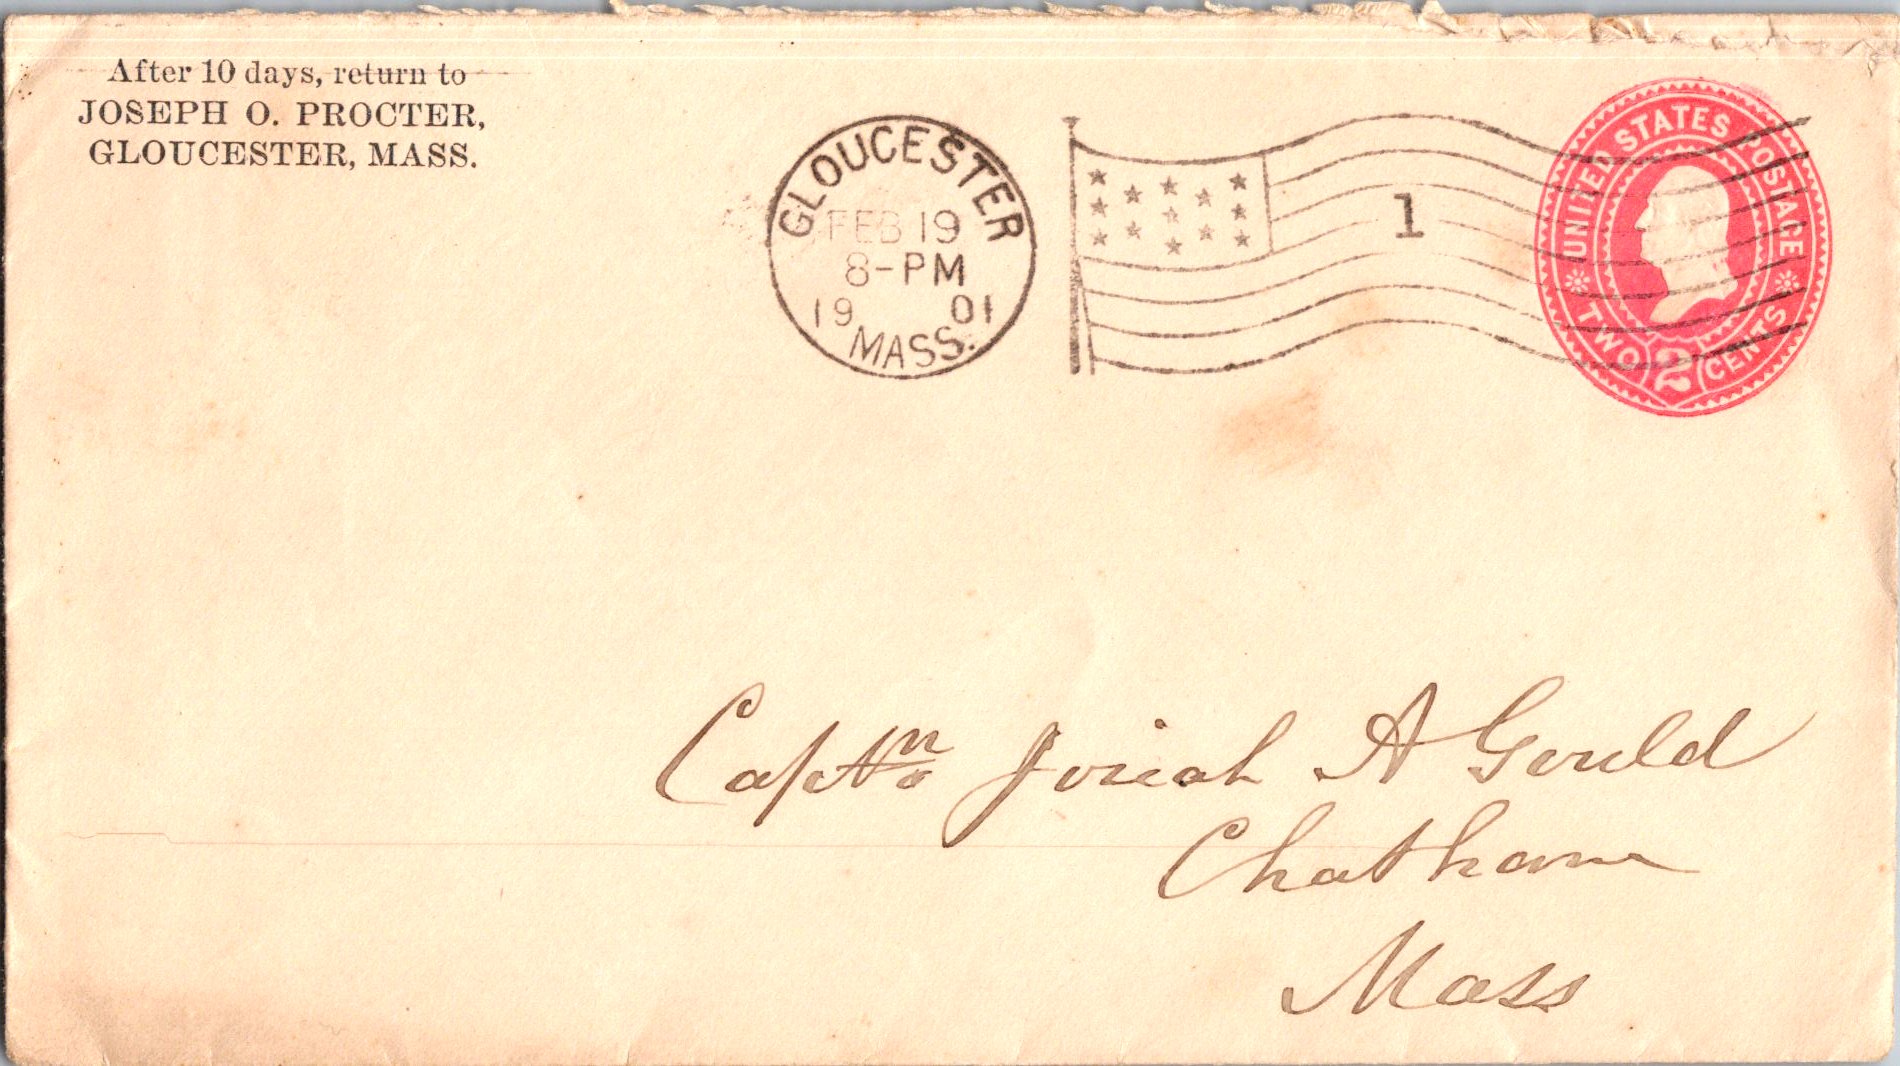 After 10 days, return to
JOSEPH O. PROCTER,
GLOUCESTER, MASS.
GLOUCESTER
FEB 19
8-PM
19 01
MASS.
1
UNITED STATES POSTAGE
TWO 2 CENTS
Captn Josiah A Gould
Chatham
Mass